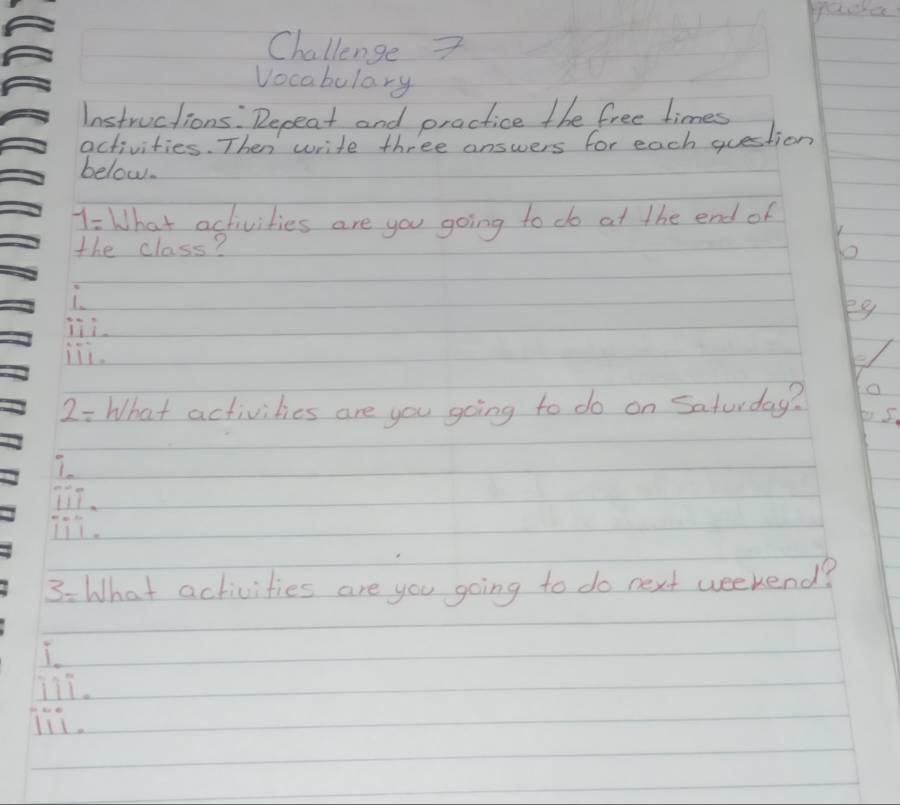 Challenge 7
Vocabulary
Instructions: Repeat and practice the free times
activities. Then write three answers for each question
below.
1= What activities are you going to do at the end of
the class?
i.
iii.
iii.
2= What activities are you going to do on Saturday?
i.
iii.
iii.
3= What activities are you going to do next weekend?
i.
iii.
iii.